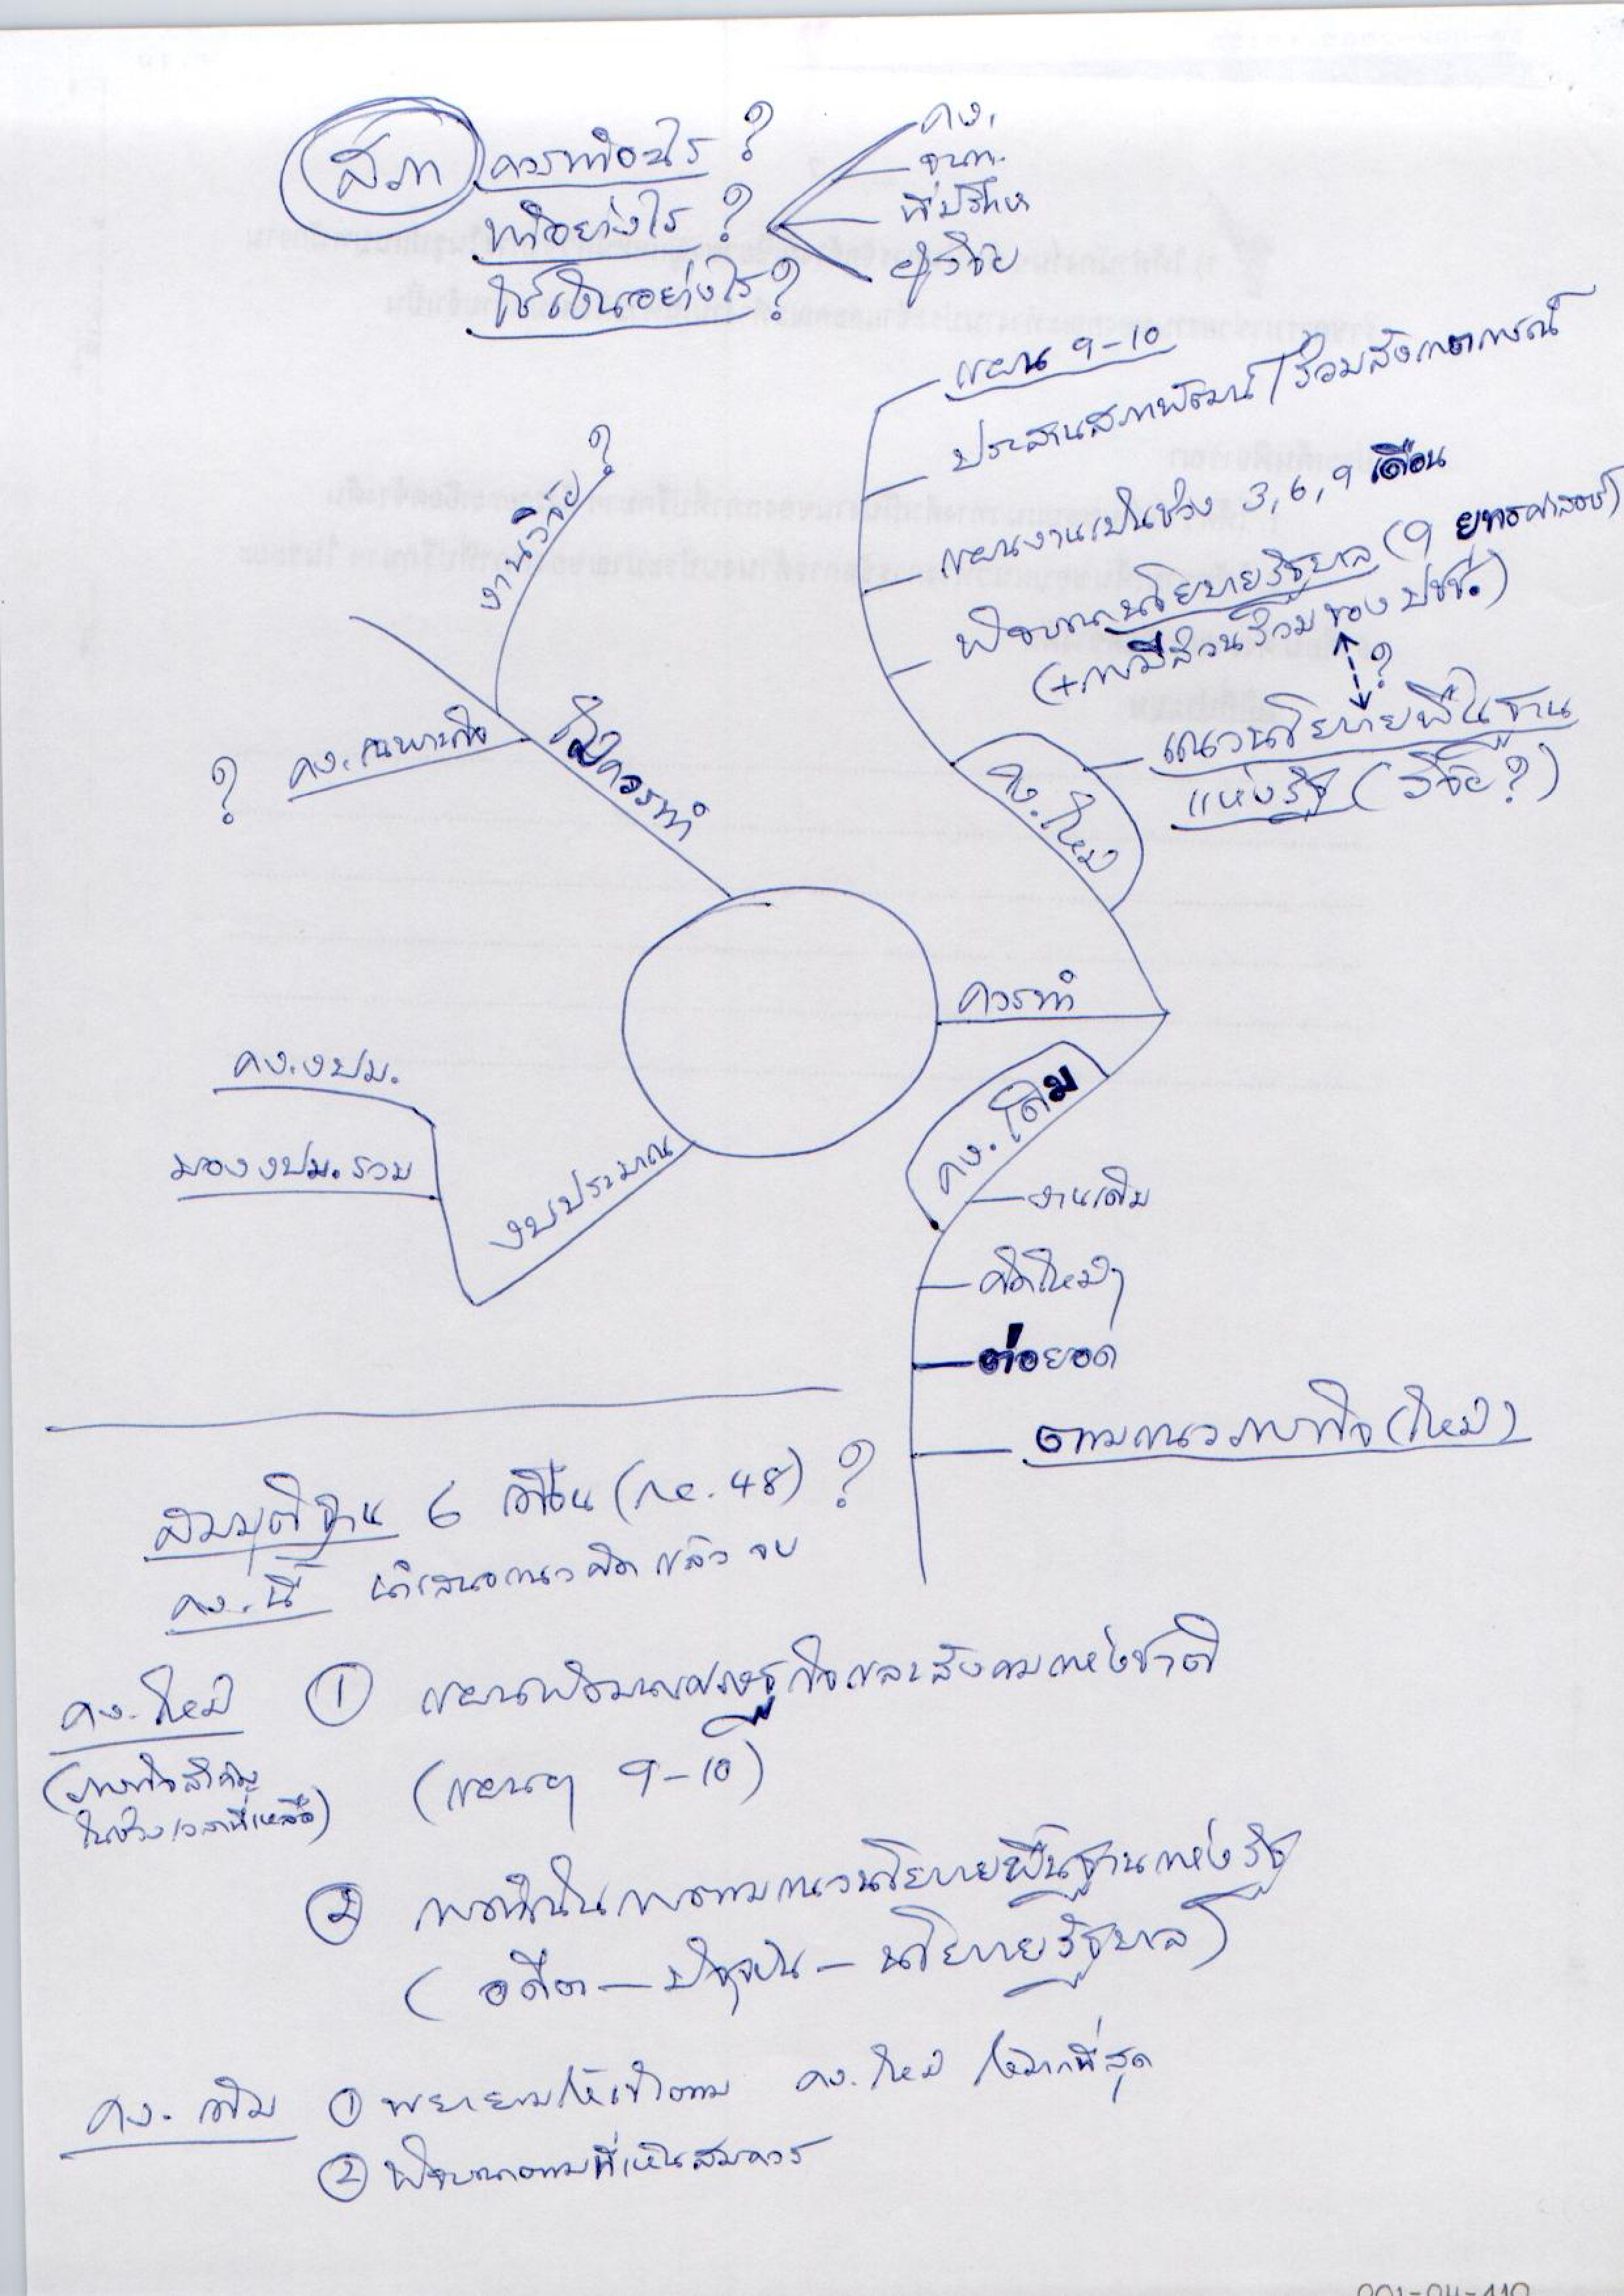 สภา ควรทำอะไร ?
ทำอย่างไร ?
ใช้เงินอย่างไร ?
คง.
จนท.
ที่ปรึกษา
ผู้วิจัย
แผน 9-10
ประสานสภาพัฒน์ / ร่วมสังเกตการณ์
แผนงานเป็นช่วง 3, 6, 9 เดือน
พิจารณานโยบายรัฐบาล (9 ยุทธศาสตร์)
(+การมีส่วนร่วมของ ปชช.)
?
แนวนโยบายพื้นฐาน
แห่งรัฐ (วิจัย ?)
คง.ใหม่
งานวิจัย ?
ไม่ควรทำ
? คง.เฉพาะกิจ
ควรทำ
คง.เดิม
งานเดิม
คิดใหม่ๆ
ต่อยอด
ตามแนวภารกิจ (ใหม่)
คง.งปม.
มอง งปม. รวม
งบประมาณ
สมมุติฐาน 6 เดือน (กค. 48) ?
คง. นี้ นำเสนอแนวคิด แล้ว จบ
คง. ใหม่ ① แผนพัฒนาเศรษฐกิจและสังคมแห่งชาติ
(ภารกิจสำคัญ
ในช่วงเวลาที่เหลือ)
(แผนฯ 9-10)
② การดำเนินการตามแนวนโยบายพื้นฐานแห่งรัฐ
(อดีต – ปัจจุบัน – นโยบายรัฐบาล)
คง. เดิม ① พยายามให้เข้าตาม คง. ใหม่ ให้มากที่สุด
② พิจารณาตามที่เห็นสมควร